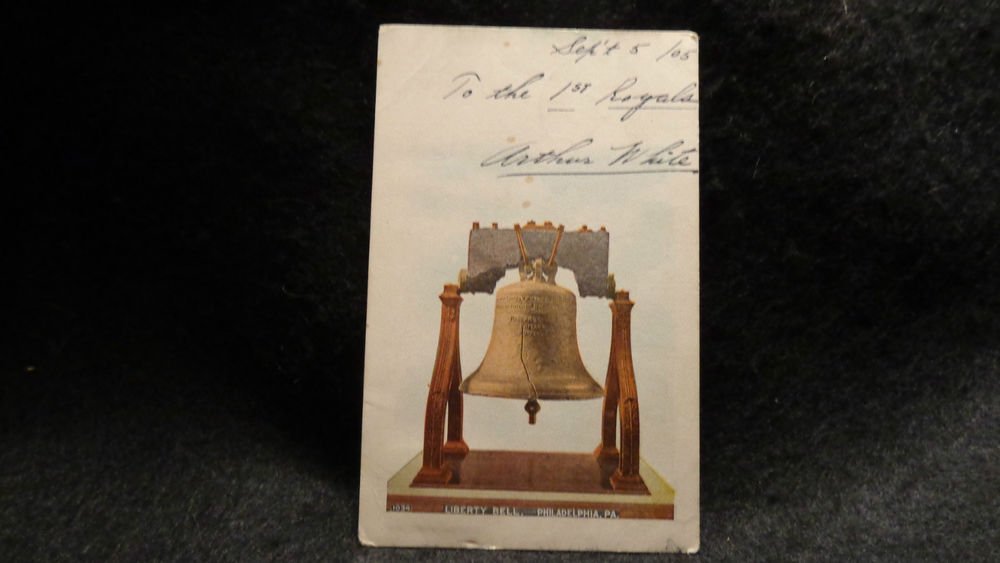 Sep't 5 /05
To the 1ST Royals
Arthur White
1034 LIBERTY BELL, PHILADELPHIA, PA.